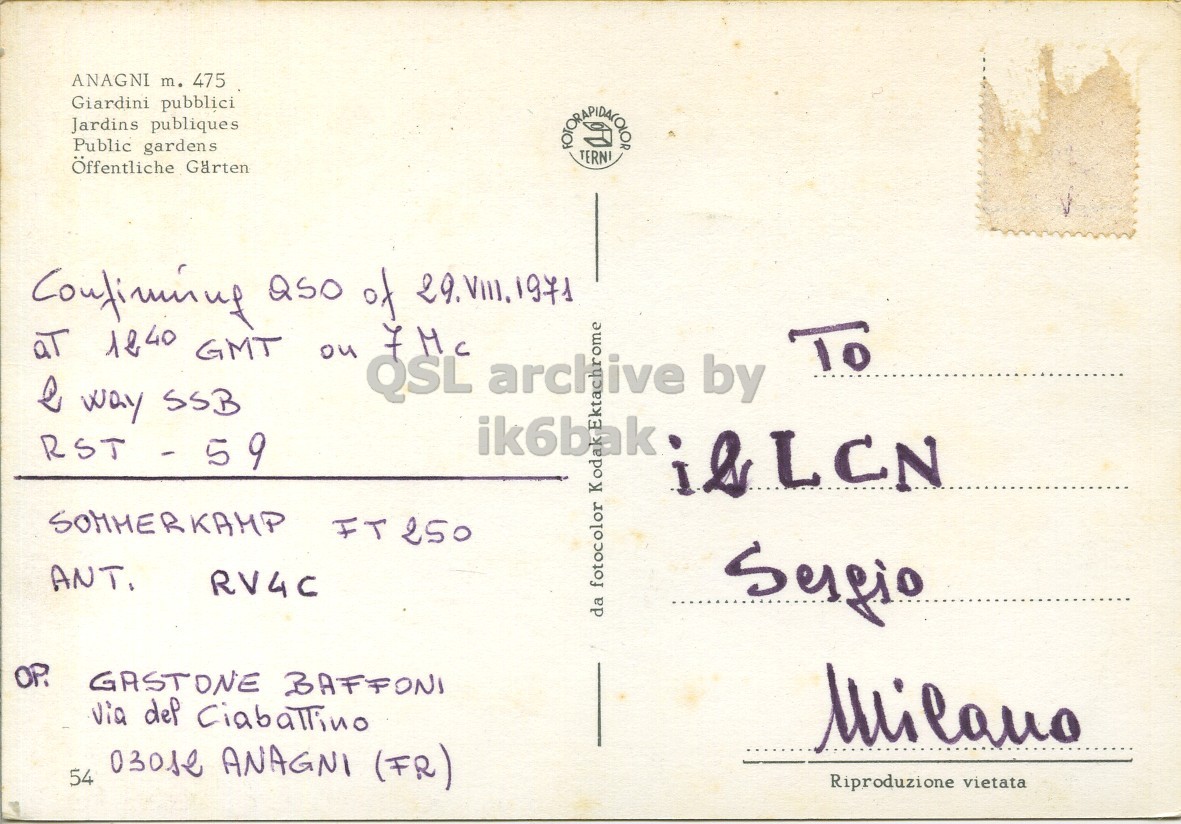 ANAGNI m. 475
Giardini pubblici
Jardins publiques
Public gardens
Öffentliche Gärten
FOTORAPIDACOLOR
TERNI
Confirming QSO of 29.VIII.1971
aT 1240 GMT on 7 Mc
2 way SSB
RST - 59
SOMMERKAMP FT 250
ANT. RV4C
OP. GASTONE BAFFONI
Via del Ciabattino
03012 ANAGNI (FR)
54
da fotocolor Kodak Ektachrome
To
i2LCN
Sergio
Milano
Riproduzione vietata
QSL archive by
ik6bak